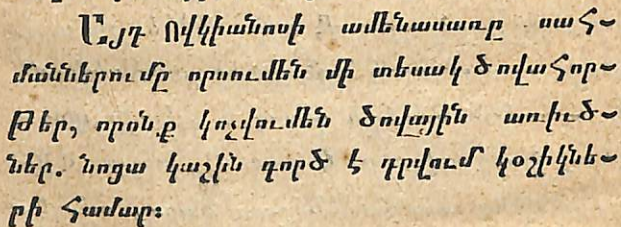 Այդ Ովկիանոսի ամենասառը սահ֊
մաններումը որսումեն մի տեսակ ծովահոր֊
թեր, որոնք կոչվումեն ծովային առիւծ֊
ներ. նոցա կաշին գործ է դրվում կօշիկնե֊
րի համար։